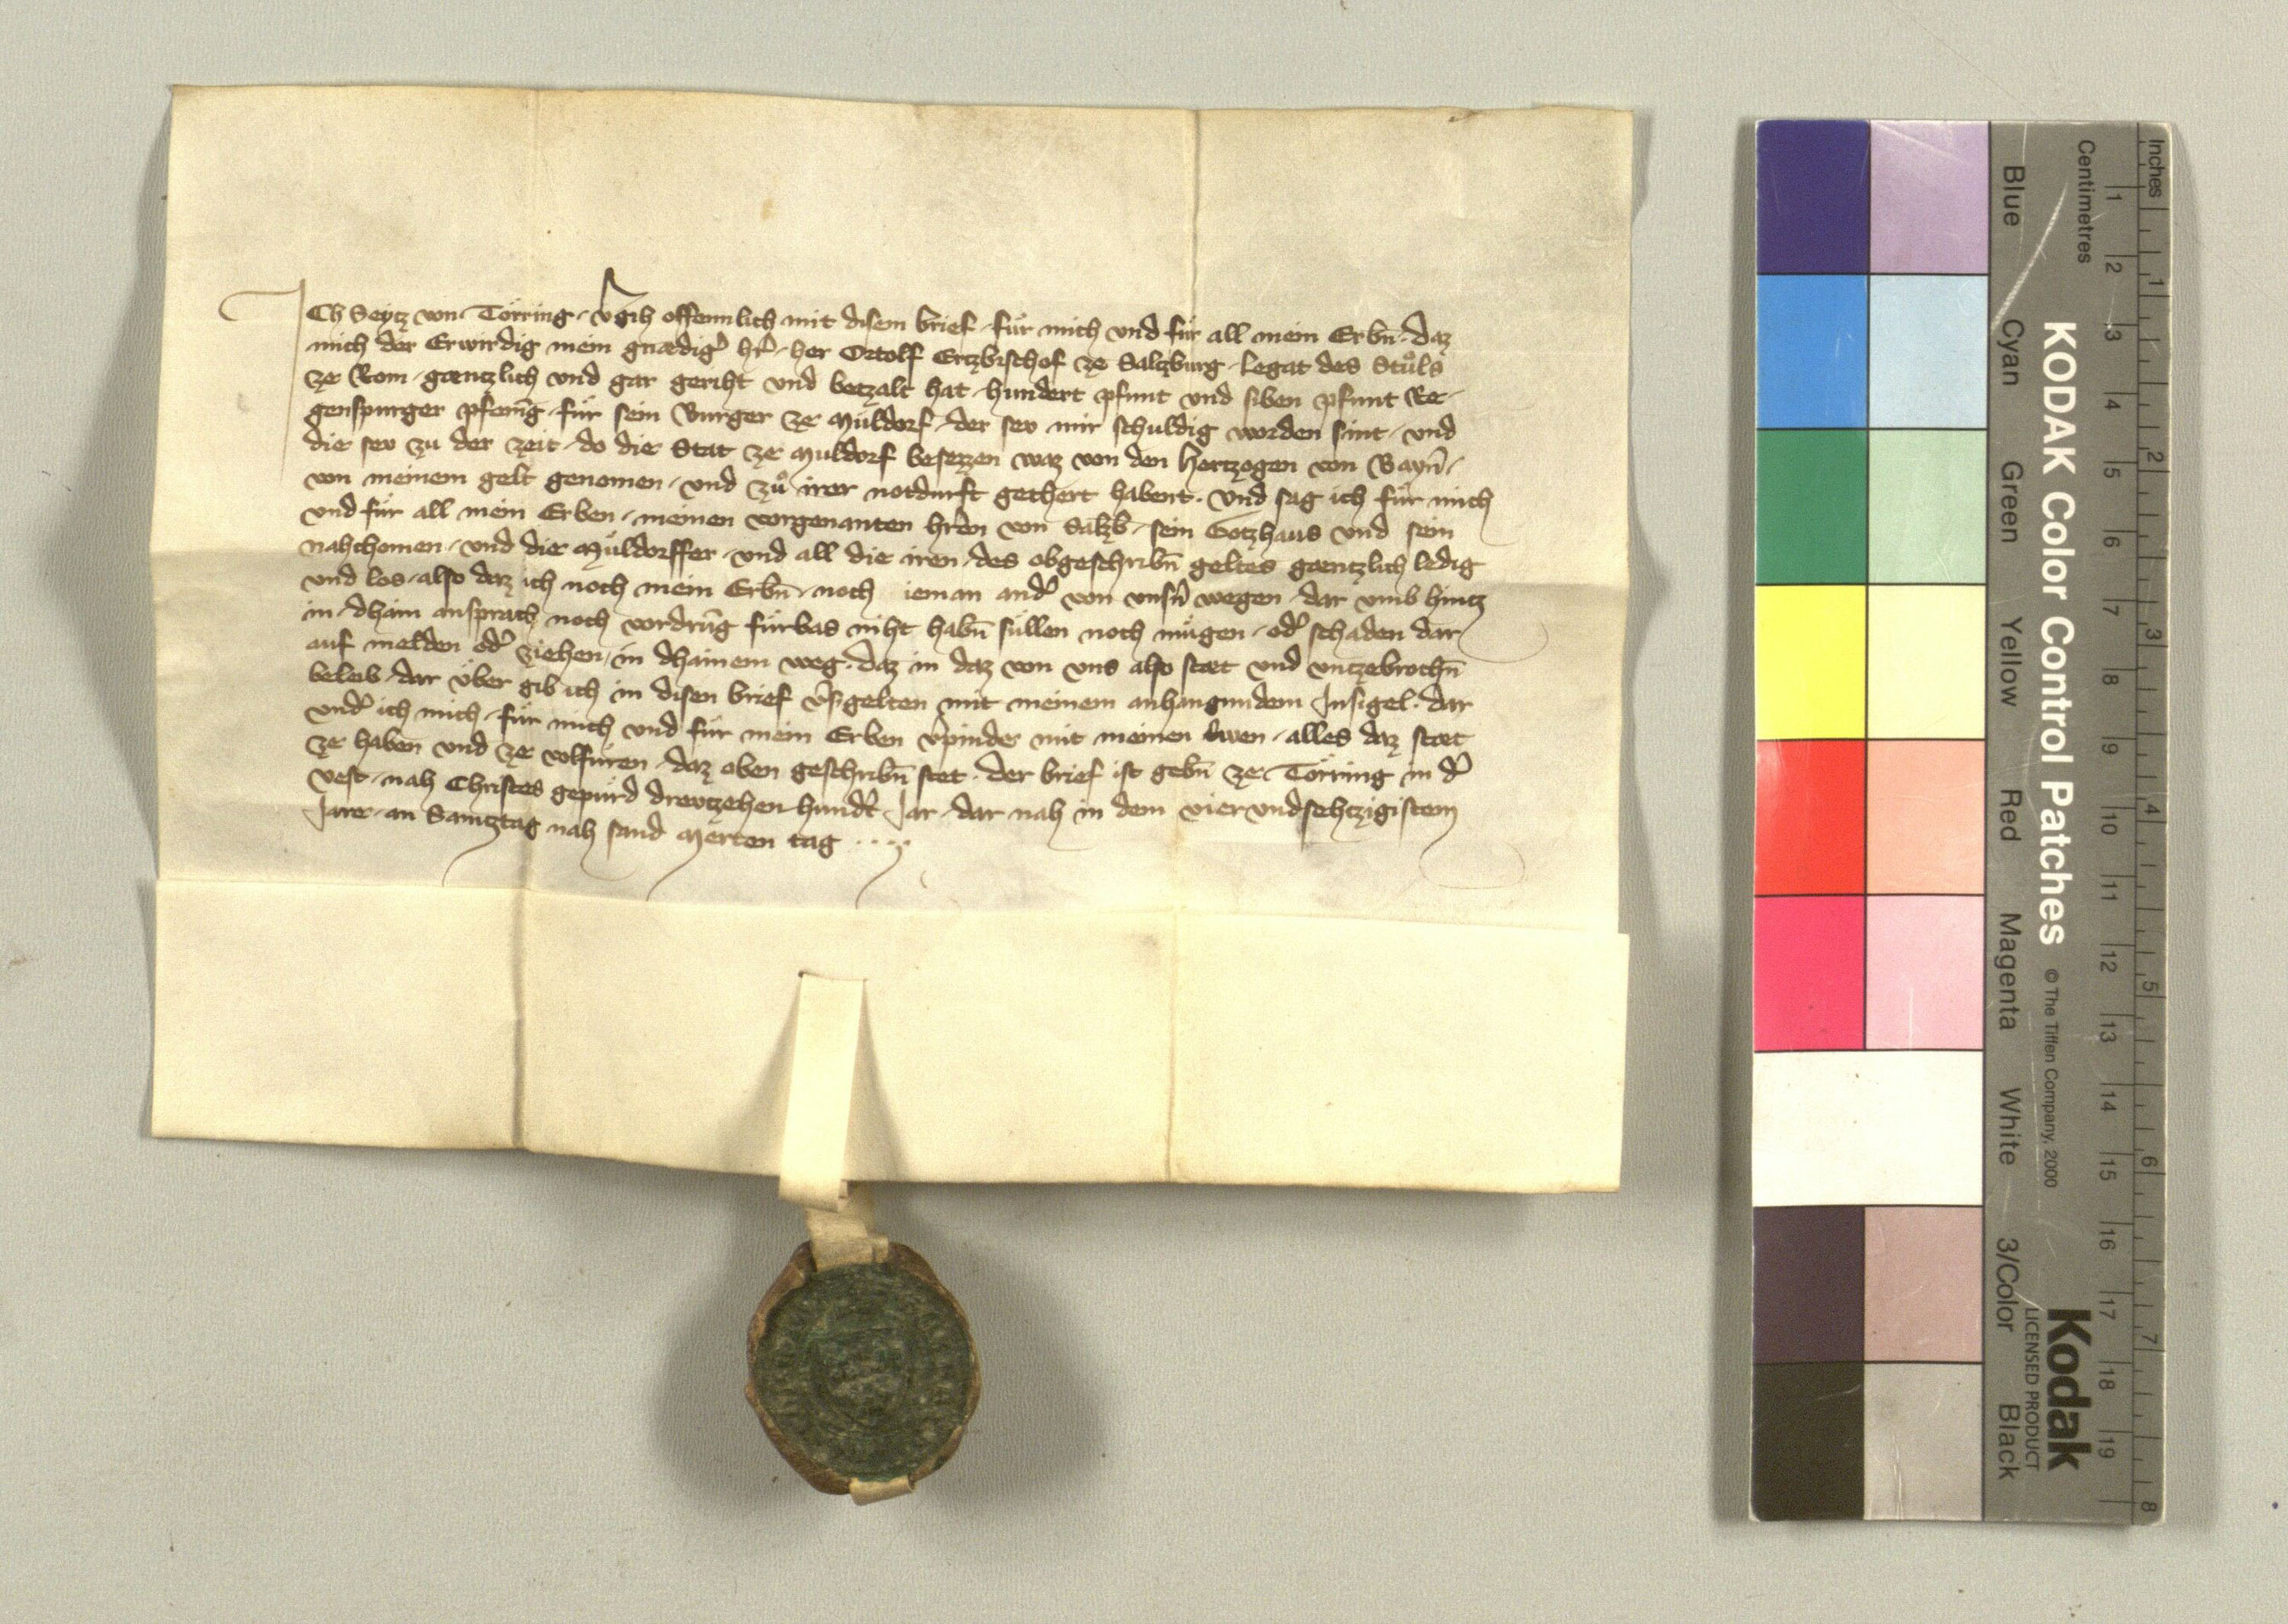 ICh Seytz von Törring v̾gih offennlich mit disem brief für mich vnd für all mein Erbn̄ daz
mich der Erwirdig mein gnædig̾ hr̄ her Ortolf Ertzbischof ze Saltzburg Legat des Stůls
ze Rom gæntzlich vnd gar geriht vnd betzalt hat hundert pfunt vnd siben pfunt Re-
genspurger pfenīg für sein Burger ze Müldorf der sev mir schuldig worden sint vnd
die sev zu der zeit do die Stat ze Muldorf besezzen waz von den Hertzogen von Bayrn̄
von meinem gelt genomen vnd zů irer notdurft gechert habent. Vnd sag ich für mich
vnd für all mein Erben meinen vorgenanten hr̄en von Salzb̄ sein Gotzhaus vnd sein
nahchomen vnd die Müldorffer vnd all die iren des obgeschribn̄ geltes gæntzlich ledig
vnd los also daz ich noch mein Erbn̄ noch ieman and̾ von vnsn̾ wegen dar vmb hintz
in dhain ansprach noch vordrūg fürbas niht habn̄ süllen noch mügen od̾ schaden dar
auf melden od̾ ziehen in dhainem weg. daz in daz von vns also stæt vnd vntzebrochn̄
beleib dar über gib ich in disen brief v̾sigelten mit meinem anhangundem Insigel. dar
vnd̾ ich mich für mich vnd für mein Erben v̾pinde mit meinen triwen alles daz stæt
ze haben vnd ze volfüren daz oben geschribn̄ stet. der brief ist gebn̄ ze Törring in d̾
vest nah Christes gepürd drevtzehen hund̾t Jar dar nah in dem viervndsehtzigistem
Jare an Samtztag nah sand Merten tag
KODAK Color Control Patches © The Tiffen Company, 2000
Kodak
LICENSED PRODUCT
Blue Cyan Green Yellow Red Magenta White 3/Color Black
Inches 1 2 3 4 5 6 7 8
Centimetres 1 2 3 4 5 6 7 8 9 10 11 12 13 14 15 16 17 18 19